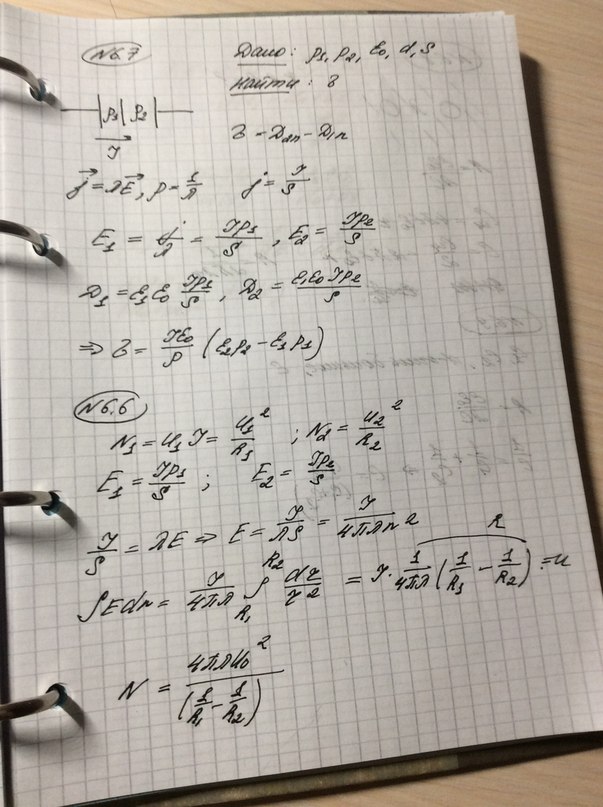 N6.7 Дано: ρ1, ρ2, ε0, d, S
Найти: σ
|ρ1|ρ2|
I
σ = D2n − D1n
j = λE, ρ = 1/λ j = I/S
E1 = j/λ = Iρ1/S, E2 = Iρ2/S
D1 = ε1ε0 Iρ1/S, D2 = ε1ε0 Iρ2/S
⇒ σ = Iε0/ρ (ε2ρ2 − ε1ρ1)
N6.6
N1 = U1 I = U1²/R1 ; N2 = U2²/R2
E1 = Iρ1/S ; E2 = Iρ2/S
I/S = λE ⇒ E = I/λS = I/4πλr²
∫Edr = I/4πλ ∫R1R2 dr/r² = I · 1/4πλ (1/R1 − 1/R2) = U
R
N = 4πλU0²/(1/R1 − 1/R2)